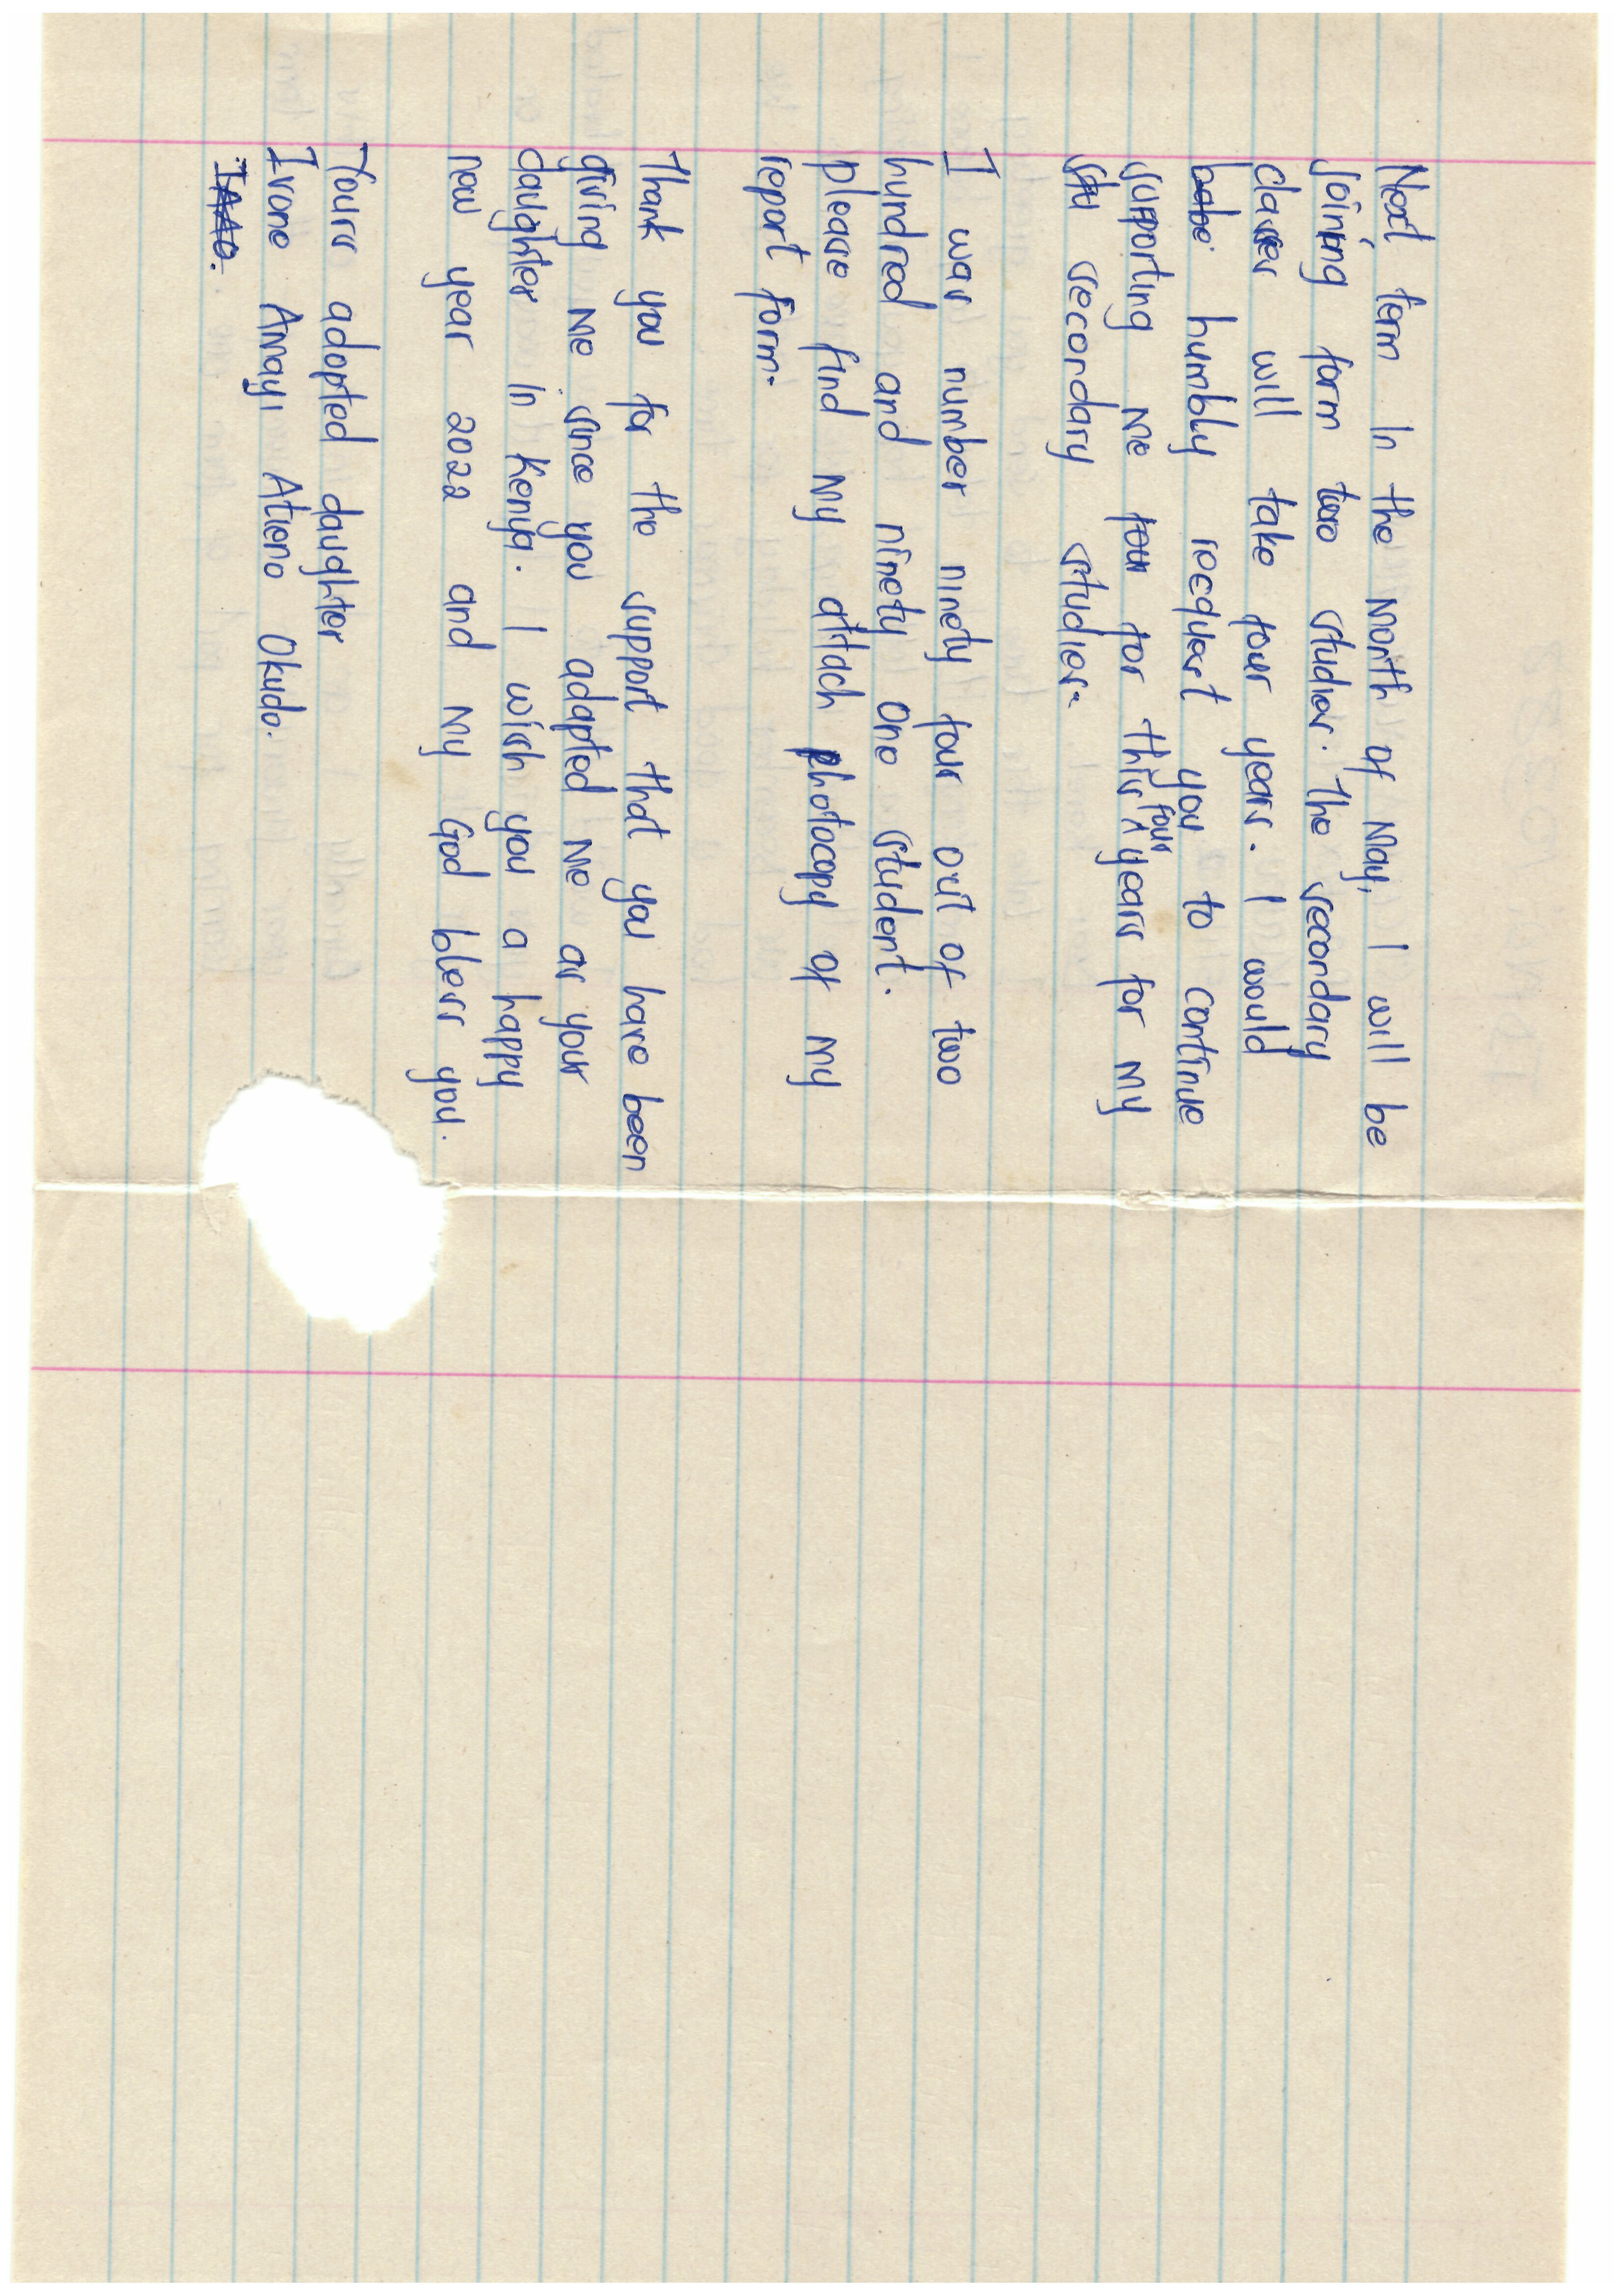 Next term in the month of May, I will be
joining form two studies. The secondary
classes will take four years. I would
humbly recquest you to continue
supporting me for this four years for my
secondary studies.
I was number ninety four out of two
hundred and ninety one student.
please find my attach photocopy of my
report form.
Thank you for the support that you have been
giving me since you adapted me as your
daughter in Kenya. I wish you a happy
new year 2022 and my God bless you.
Yours adopted daughter
Irone Amayi Atieno Okudo.